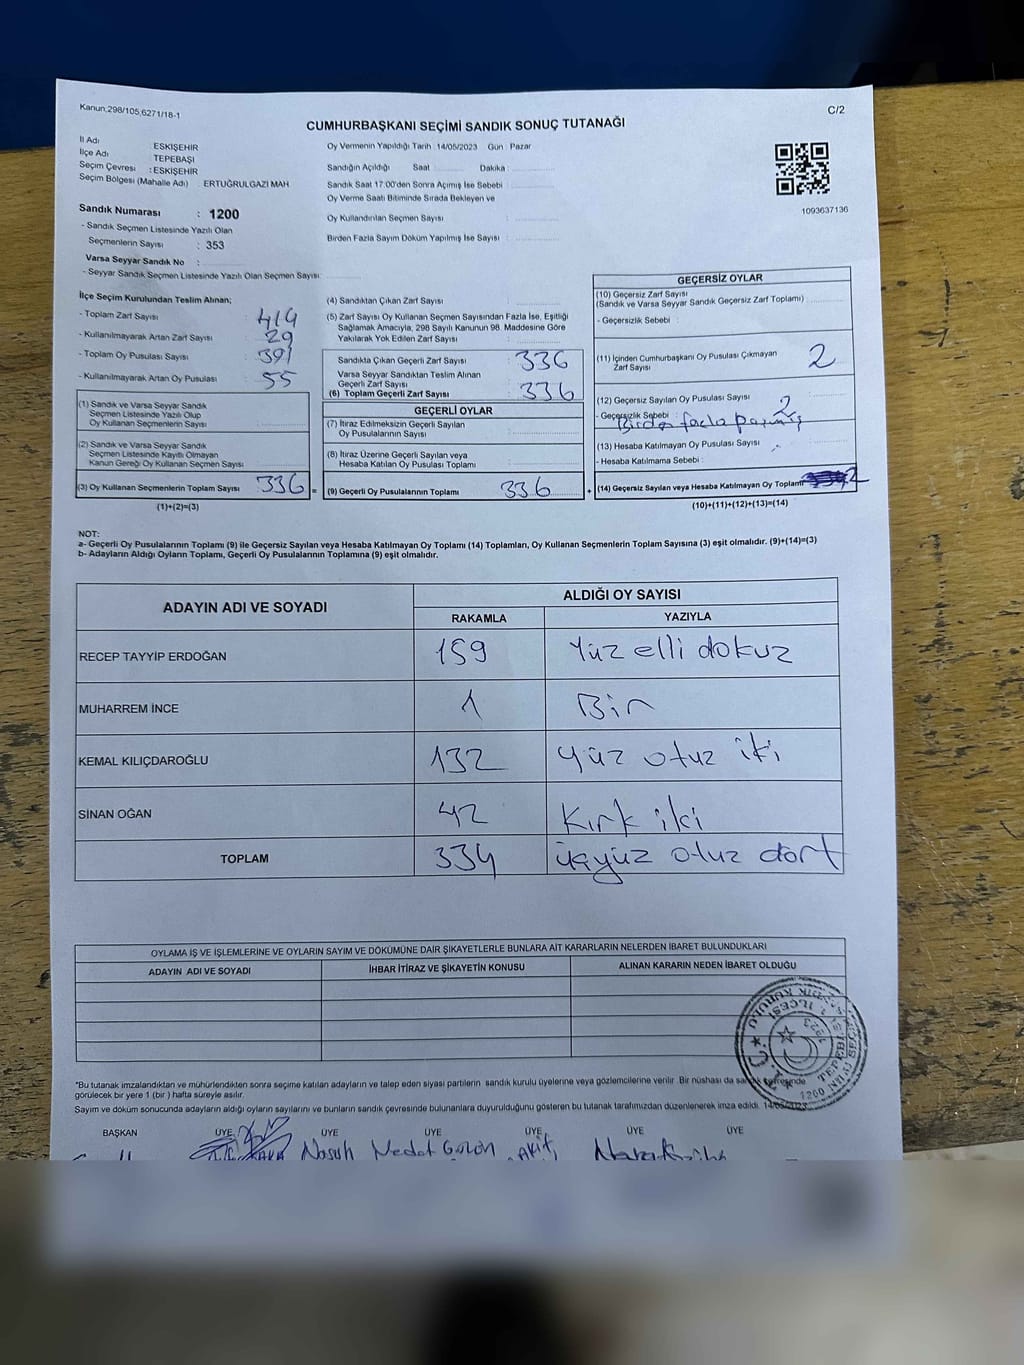 Kanun,298/105,6271/18-1
C/2
CUMHURBAŞKANI SEÇİMİ SANDIK SONUÇ TUTANAĞI
İl Adı : ESKİŞEHİR
İlçe Adı : TEPEBAŞI
Seçim Çevresi : ESKİŞEHİR
Seçim Bölgesi (Mahalle Adı) : ERTUĞRULGAZİ MAH.
Sandık Numarası : 1200
- Sandık Seçmen Listesinde Yazılı Olan
Seçmenlerin Sayısı : 353
Varsa Seyyar Sandık No :
- Seyyar Sandık Seçmen Listesinde Yazılı Olan Seçmen Sayısı:
Oy Vermenin Yapıldığı Tarih :14/05/2023 Gün : Pazar
Sandığın Açıldığı Saat Dakika :
Sandık Saat 17:00'den Sonra Açımış İse Sebebi :
Oy Verme Saati Bitiminde Sırada Bekleyen ve
Oy Kullandırılan Seçmen Sayısı :
Birden Fazla Sayım Döküm Yapılmış İse Sayısı :
1093637136
İlçe Seçim Kurulundan Teslim Alınan;
- Toplam Zarf Sayısı 414
- Kullanılmayarak Artan Zarf Sayısı 29
- Toplam Oy Pusulası Sayısı 391
- Kullanılmayarak Artan Oy Pusulası 55
(1) Sandık ve Varsa Seyyar Sandık
Seçmen Listesinde Yazılı Olup
Oy Kullanan Seçmenlerin Sayısı :
(2) Sandık ve Varsa Seyyar Sandık
Seçmen Listesinde Kayıtlı Olmayan
Kanun Gereği Oy Kullanan Seçmen Sayısı
(3) Oy Kullanan Seçmenlerin Toplam Sayısı 336
(1)+(2)=(3)
(4) Sandıktan Çıkan Zarf Sayısı :
(5) Zarf Sayısı Oy Kullanan Seçmen Sayısından Fazla İse, Eşitliği
Sağlamak Amacıyla, 298 Sayılı Kanunun 98. Maddesine Göre
Yakılarak Yok Edilen Zarf Sayısı :
Sandıkta Çıkan Geçerli Zarf Sayısı : 336
Varsa Seyyar Sandıktan Teslim Alınan
Geçerli Zarf Sayısı :
(6) Toplam Geçerli Zarf Sayısı : 336
GEÇERLİ OYLAR
(7) İtiraz Edilmeksizin Geçerli Sayılan
Oy Pusulalarının Sayısı :
(8) İtiraz Üzerine Geçerli Sayılan veya
Hesaba Katılan Oy Pusulası Toplamı :
= (9) Geçerli Oy Pusulalarının Toplamı 336
GEÇERSİZ OYLAR
(10) Geçersiz Zarf Sayısı
(Sandık ve Varsa Seyyar Sandık Geçersiz Zarf Toplamı)
- Geçersizlik Sebebi :
(11) İçinden Cumhurbaşkanı Oy Pusulası Çıkmayan
Zarf Sayısı : 2
(12) Geçersiz Sayılan Oy Pusulası Sayısı : 2
- Geçersizlik Sebebi : Birden fazla basmış
(13) Hesaba Katılmayan Oy Pusulası Sayısı :
- Hesaba Katılmama Sebebi :
+ (14) Geçersiz Sayılan veya Hesaba Katılmayan Oy Toplamı 2
(10)+(11)+(12)+(13)=(14)
NOT:
a- Geçerli Oy Pusulalarının Toplamı (9) ile Geçersiz Sayılan veya Hesaba Katılmayan Oy Toplamı (14) Toplamları, Oy Kullanan Seçmenlerin Toplam Sayısına (3) eşit olmalıdır. (9)+(14)=(3)
b- Adayların Aldığı Oyların Toplamı, Geçerli Oy Pusulalarının Toplamına (9) eşit olmalıdır.
ADAYIN ADI VE SOYADI
ALDIĞI OY SAYISI
RAKAMLA YAZIYLA
RECEP TAYYİP ERDOĞAN 159 Yüz elli dokuz
MUHARREM İNCE 1 Bir
KEMAL KILIÇDAROĞLU 132 Yüz otuz iki
SİNAN OĞAN 42 Kırk iki
TOPLAM 334 üçyüz otuz dört
OYLAMA İŞ VE İŞLEMLERİNE VE OYLARIN SAYIM VE DÖKÜMÜNE DAİR ŞİKAYETLERLE BUNLARA AİT KARARLARIN NELERDEN İBARET BULUNDUKLARI
ADAYIN ADI VE SOYADI İHBAR İTİRAZ VE ŞİKAYETİN KONUSU ALINAN KARARIN NEDEN İBARET OLDUĞU
*Bu tutanak imzalandıktan ve mühürlendikten sonra seçime katılan adayların ve talep eden siyasi partilerin sandık kurulu üyelerine veya gözlemcilerine verilir. Bir nüshası da sandık çevresinde
görülecek bir yere 1 (bir ) hafta süreyle asılır.
Sayım ve döküm sonucunda adayların aldığı oyların sayılarını ve bunların sandık çevresinde bulunanlara duyurulduğunu gösteren bu tutanak tarafımızdan düzenlenerek imza edildi.
T.C. TEPEBAŞI 1923 1200
BAŞKAN ÜYE ÜYE ÜYE ÜYE ÜYE ÜYE
Nasuh Nedat Akif